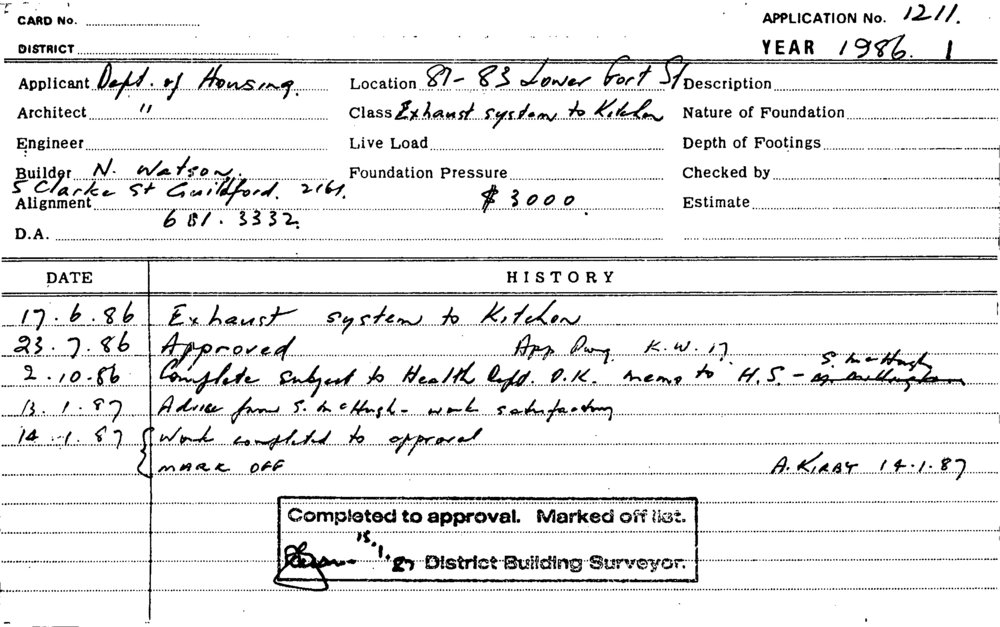 CARD No.
APPLICATION No. 1211.
DISTRICT
YEAR 1986. 1
Applicant Dept. of Housing. Location 81-83 Lower Fort St Description
Architect " Class Exhaust system to Kitchen Nature of Foundation
Engineer Live Load Depth of Footings
Builder N. Watson. Foundation Pressure Checked by
5 Clarke St Guildford. 2161.
Alignment $3000. Estimate
681.3332.
D.A.
DATE HISTORY
17.6.86 Exhaust system to Kitchen
23.7.86 Approved App Dwg. K.W.17.
S. McHugh
2.10.86 Complete subject to Health Dept. O.K. memo to H.S -
13.1.87 Advice from S. McHugh - work satisfactory
14.1.87 Work completed to approval
MARK OFF A. KIRBY 14.1.87
Completed to approval. Marked off list.
15.1.87 District Building Surveyor.